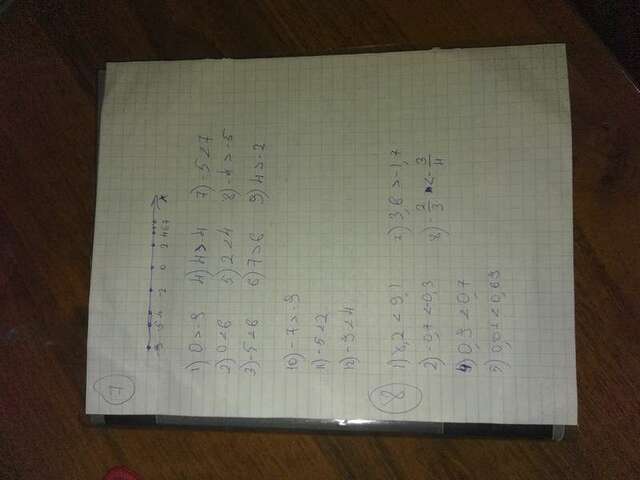 7
-9 -5 -4 -2 0 2 4 6 7 x
1) 0 > -9 4) 4 > -4 7) -5 < 7
2) 0 < 6 5) 2 < 4 8) -4 > -5
3) -5 < 6 6) 7 > 6 9) 4 > -2
10) -7 > -9
11) -5 < 2
12) -9 < 4
8
1) 8,2 < 9,1 7) 3,6 > -1,7
2) -0,7 < -0,3 8) -2/3 < -3/4
4) 0,3 < 0,7
5) 0,0 < 0,69